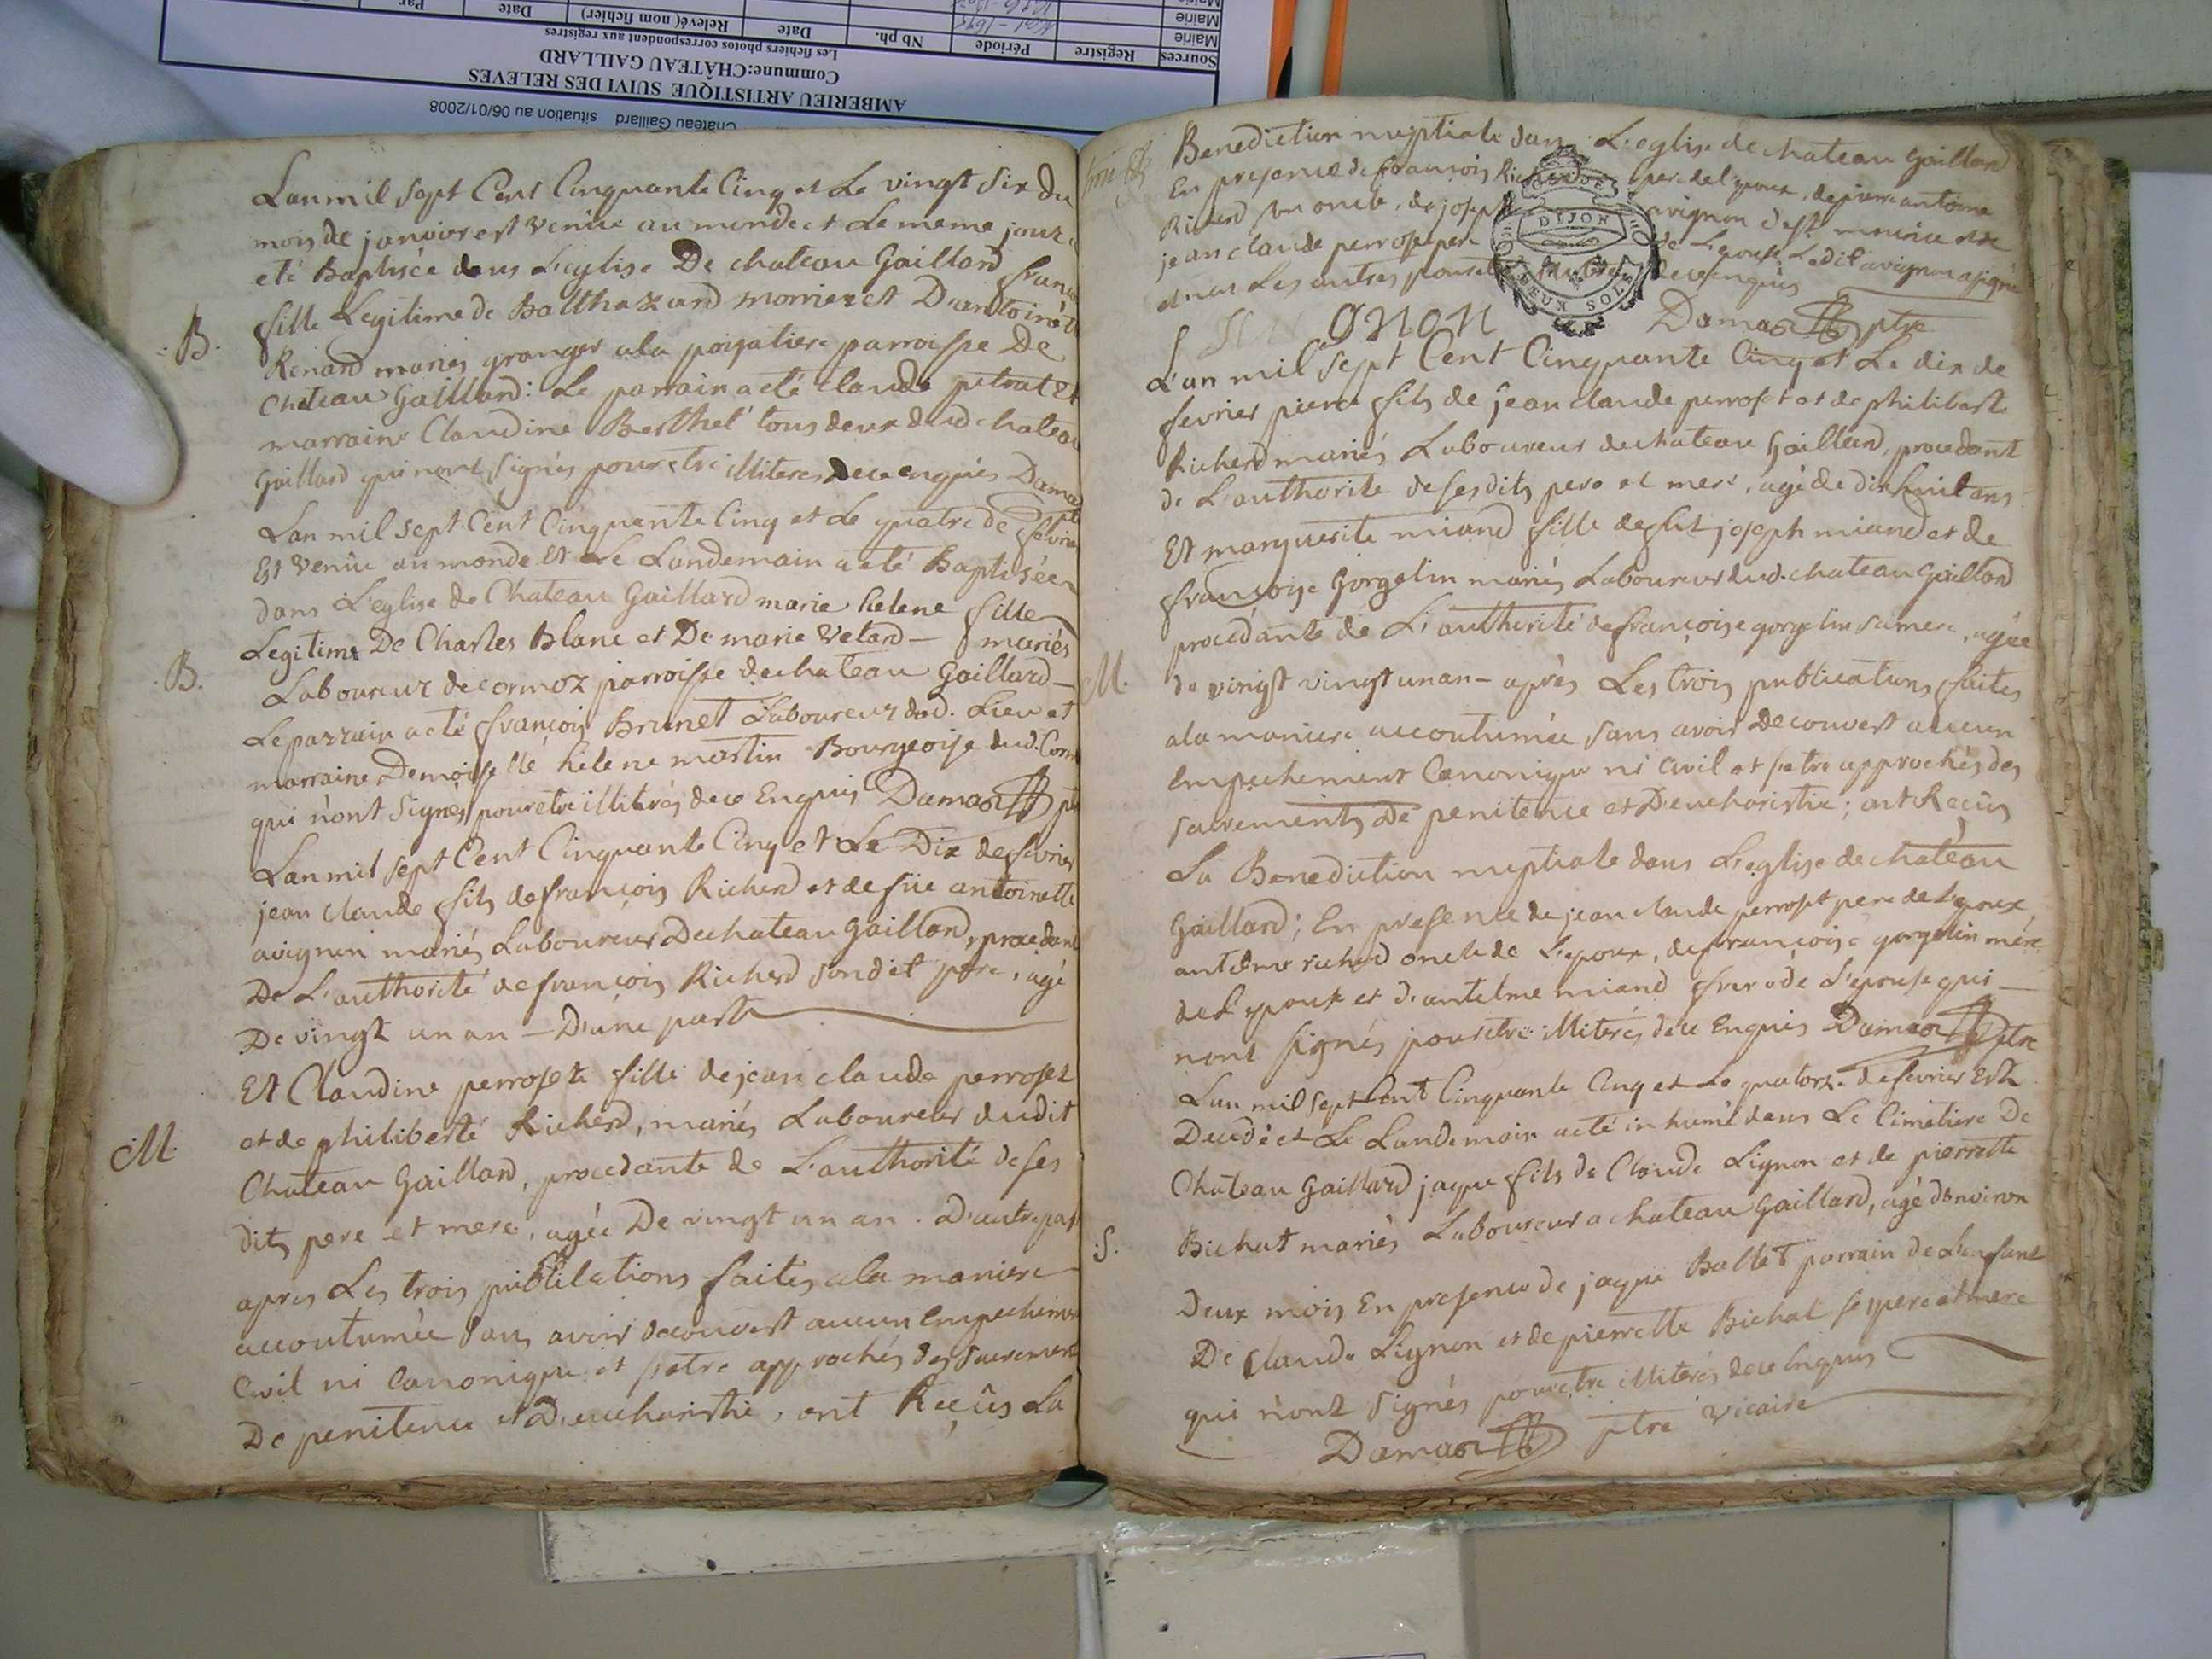 Chateau Gaillard situation au 06/01/2008
AMBERIEU ARTISTIQUE SUIVI DES RELEVES
Commune:CHÂTEAU GAILLARD
Les fichiers photos correspondent aux registres
Sources Registre Période Nb ph. Date Relevé( nom fichier) Date Par
Mairie
Mairie
Lan mil sept Cent Cinquante Cinq et Le vingt six du
mois de janvier est venüe au monde et Le meme jour a
eté Baptisée dans L'eglise De chateau Gaillard
fille Legitime de Balthazard morrier et D'antoinet
B.
Renard mariés granger a la poyatiere parroisse De
Chateau Gaillard: Le parrain a eté claude petrat Et
marraine Claudine Berthet tous deux dud chateau
Gaillard qui n'ont signés pour etre illiteres de ce enquis Damas
Lan mil sept Cent Cinquante Cinq et Le quatre de fevrier
Est venüe au monde Et Le Landemain a eté Baptisée
dans L'eglise de Chateau Gaillard marie helene fille
Legitime De Charles Blanc et De marie Vetard - mariés
B.
Laboureur de cormoz parroisse de chateau Gaillard -
Le parrain a eté françois Brunet Laboureur dud. Lieu et
marraine Demoiselle helene martin Bourgeoise dud. Corm
qui n'ont signés pour etre illiterés de ce Enquis Damas
Lan mil sept Cent Cinquante Cinq et Le Dix de fevrier
jean claude fils de françois Richerd et de füe antoinette
avignon mariés Laboureur De chateau Gaillard, procedant
De L'authorité de françois Richerd sondit pere, agé
De vingt un an - D'une part
Et Claudine perroset fille de jean claude perroset
et de philiberte Richerd, mariés Laboureur dudit
M.
Chateau Gaillard, procedante de L'authorité de ses
dits pere et mere, agée De vingt un an. D'autre part
apres Les trois publications faites a la maniere
accoutumée sans avoir decouvert aucun Empechement
Civil ni Canonique et s'etre approchés des sacrement
De penitence et D'eucharistie, ont Reçûs La
Benediction nuptiale dans L'eglise de chateau Gaillard
En presence de françois Richerd pere de l'epoux, de pierre antoine
Richerd son oncle, de joseph avignon
jean claude perroset pere de L'epouse Ledit avignon a signé
et non Les autres pour etre de ce enquis
GNON Damas ptre
L'an mil sept Cent Cinquante Cinq et Le dix de
fevrier pierre fils de jean claude perroset et de philiberte
Richerd mariés Laboureur de chateau Gaillard, procedant
de L'authorité de ses dits pere et mere, agé de dix huit ans
Et marguerite miand fille de fut joseph miand et de
françoise Gorgelin mariés Laboureur dud. chateau Gaillard
procédante de L'authorité de françoise gorgelin sa mere, agée
M.
de vingt vingt un an - après Les trois publications faites
a la maniere accoutumée sans avoir decouvert aucun
Empechement Canonique ni Civil et s'etre approchés des
sacrements De penitence et D'eucharistie; ont Reçûs
La Benediction nuptiale dans L'eglise de chateau
Gaillard; En presence de jean claude perroset pere de L'epoux,
antelme richerd oncle de L'epoux, de françoise gorgelin mére
de L'epouse et d'antelme miand frere de L'epouse qui -
n'ont signés pour etre illiterés de ce Enquis Damas ptre
Lan mil sept Cent Cinquante Cinq et Le quatorze de fevrier Est
Decedé et Le Landemain a eté inhumé dans Le Cimetiere De
Chateau Gaillard jaque fils de Claude Lignon et de pierrette
S.
Bichat mariés Laboureur a chateau Gaillard, agé d'environ
Deux mois En presence de jaque Ballet parrain de L'enfant
De claude Lignon et de pierrette Bichat ses pere et mere
qui n'ont signés pour etre illiterés de ce Enquis
Damas ptre vicaire
DIJON
DEUX SOLS